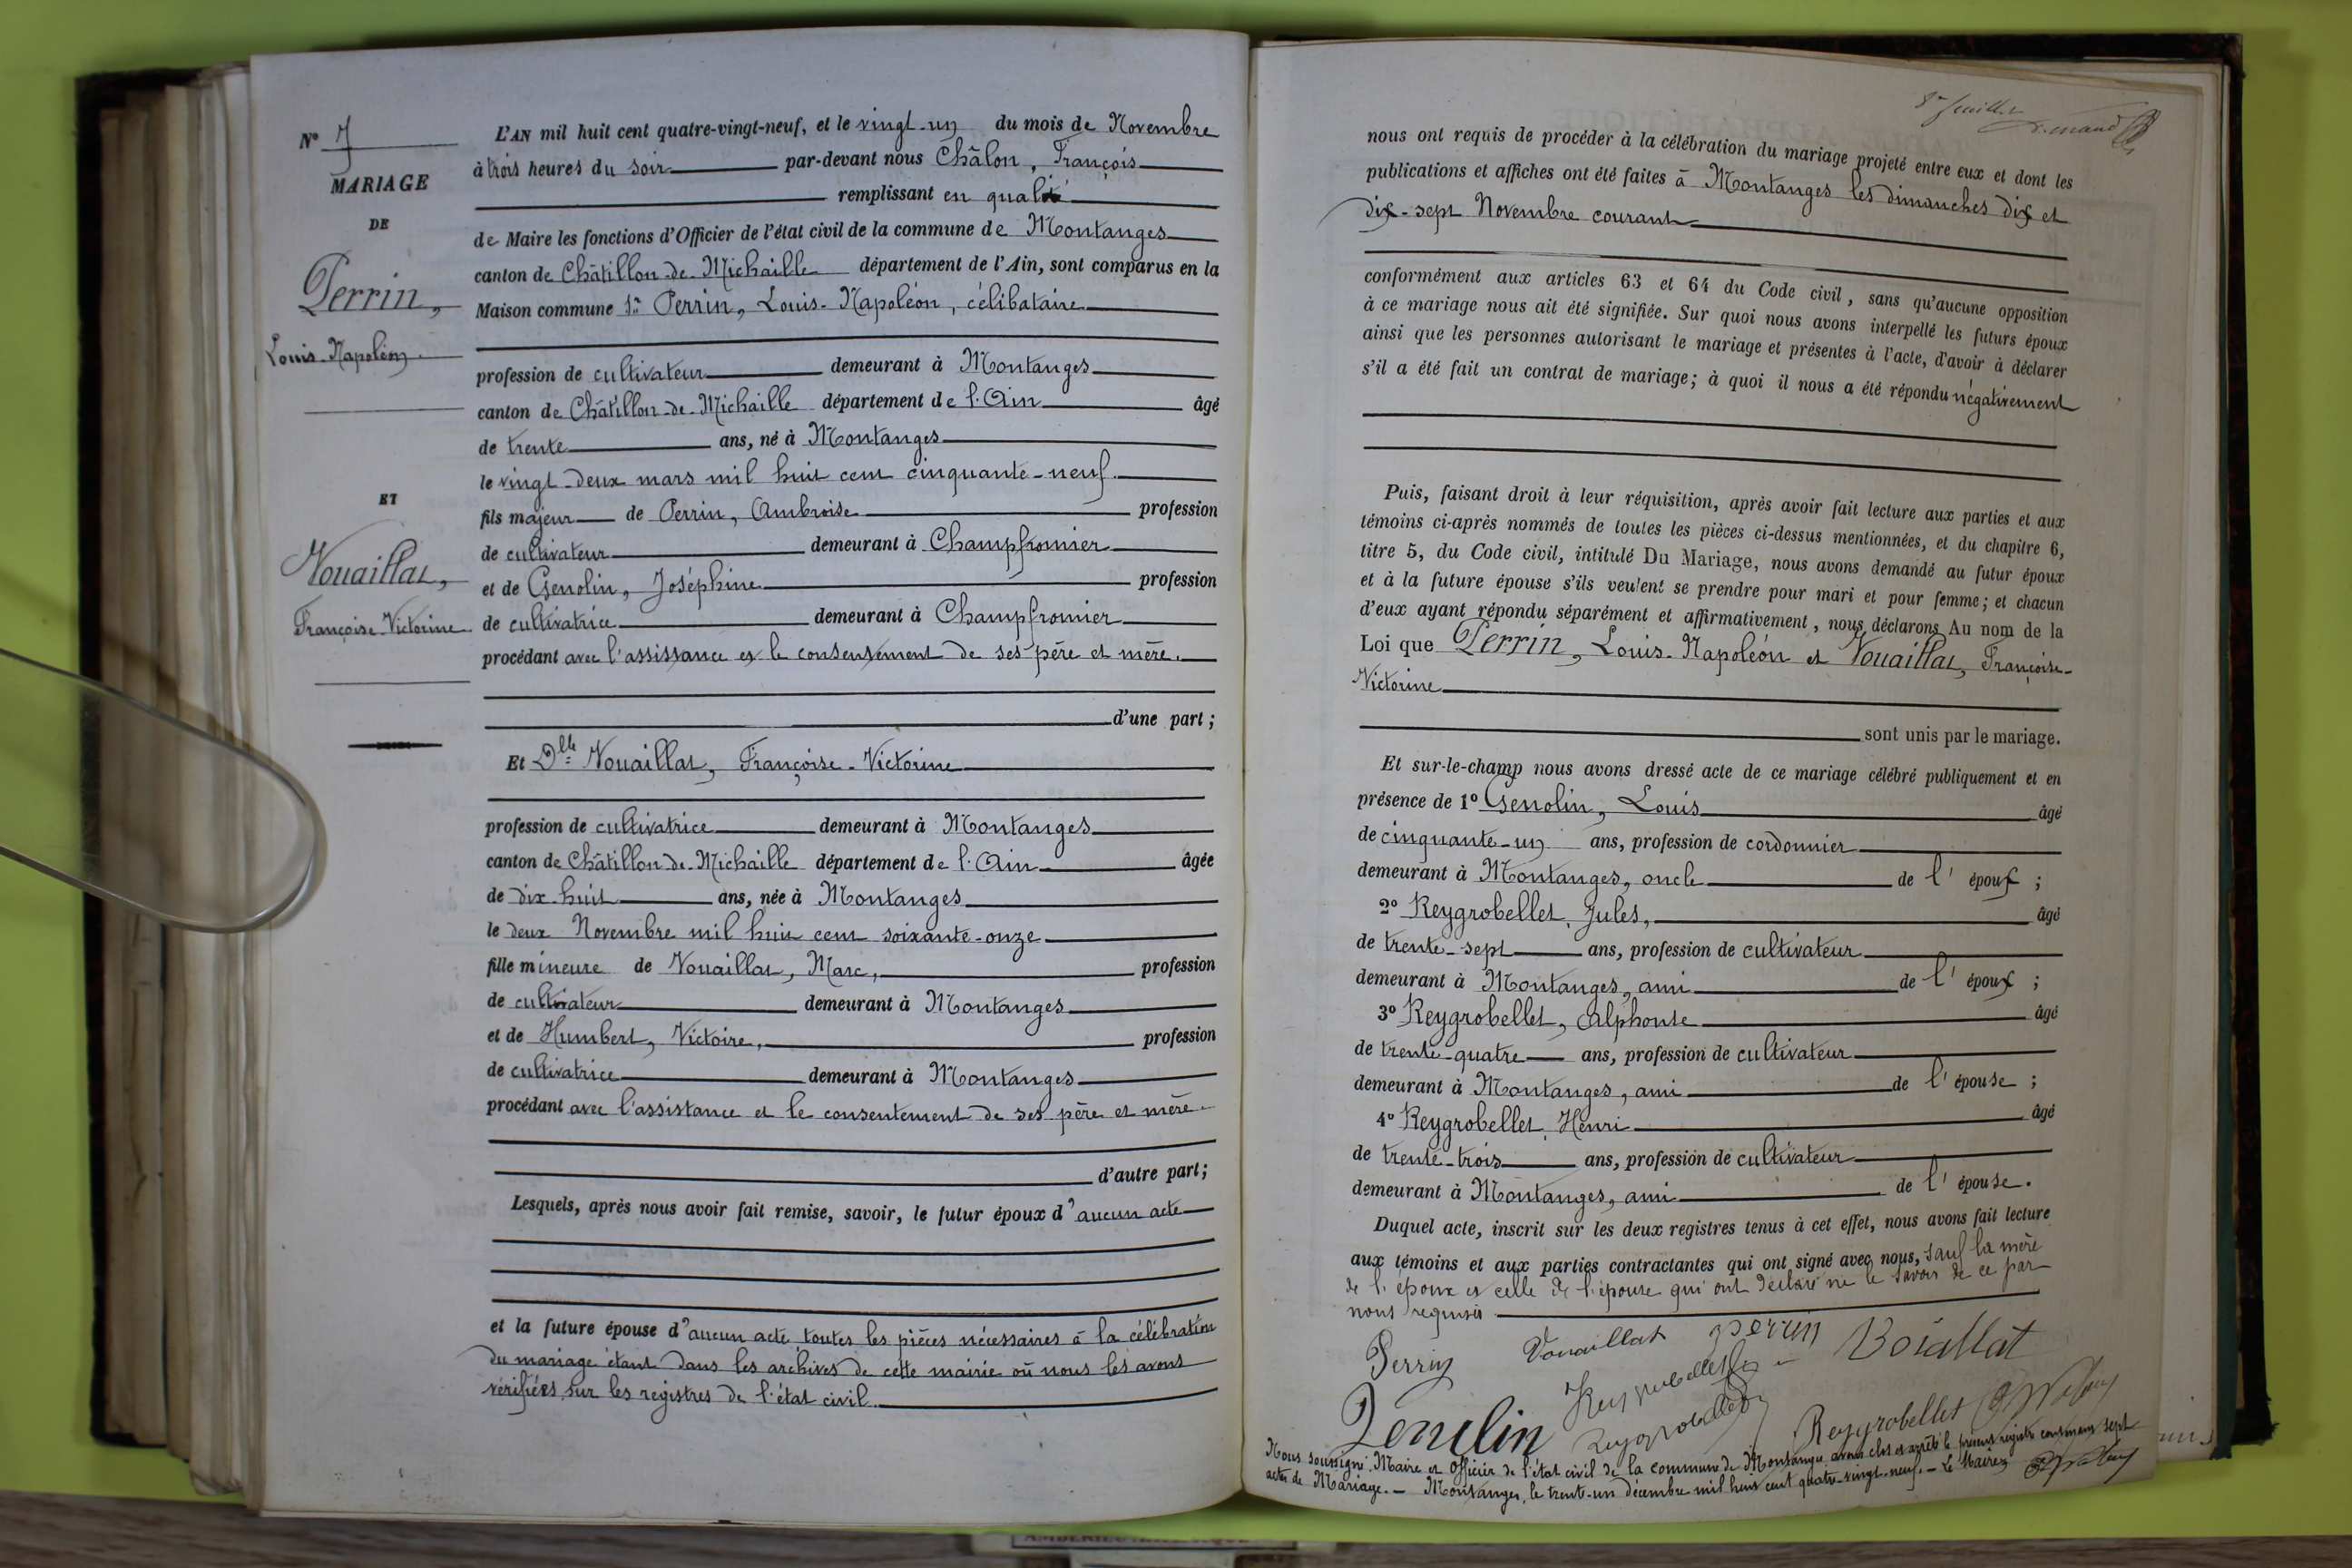 N° 7
MARIAGE
DE
Perrin,
Louis-Napoléon
ET
Vouaillat,
Françoise-Victorine
L'AN mil huit cent quatre-vingt-neuf, et le vingt-un du mois de Novembre
à trois heures du soir par-devant nous Châlon, François
remplissant en qualité
de Maire les fonctions d'Officier de l'état civil de la commune de Montanges
canton de Châtillon-de-Michaille département de l'Ain, sont comparus en la
Maison commune Sr Perrin, Louis-Napoléon, célibataire
profession de cultivateur demeurant à Montanges
canton de Châtillon-de-Michaille département de l'Ain âgé
de trente ans, né à Montanges
le vingt-deux mars mil huit cent cinquante-neuf
fils majeur de Perrin, Ambroise profession
de cultivateur demeurant à Champfromier
et de Genolin, Joséphine profession
de cultivatrice demeurant à Champfromier
procédant avec l'assistance et le consentement de ses père et mère.
d'une part;
Et Dlle Vouaillat, Françoise-Victorine
profession de cultivatrice demeurant à Montanges
canton de Châtillon-de-Michaille département de l'Ain âgée
de dix-huit ans, née à Montanges
le deux Novembre mil huit cent soixante-onze
fille mineure de Vouaillat, Marc, profession
de cultivateur demeurant à Montanges
et de Humbert, Victoire, profession
de cultivatrice demeurant à Montanges
procédant avec l'assistance et le consentement de ses père et mère.
d'autre part;
Lesquels, après nous avoir fait remise, savoir, le futur époux d'aucun acte
et la future épouse d'aucun acte toutes les pièces nécessaires à la célébration
du mariage étant dans les archives de cette mairie où nous les avons
vérifiées sur les registres de l'état civil.
8e feuillet
nous ont requis de procéder à la célébration du mariage projeté entre eux et dont les
publications et affiches ont été faites à Montanges les dimanches dix et
dix-sept Novembre courant
conformément aux articles 63 et 64 du Code civil, sans qu'aucune opposition
à ce mariage nous ait été signifiée. Sur quoi nous avons interpellé les futurs époux
ainsi que les personnes autorisant le mariage et présentes à l'acte, d'avoir à déclarer
s'il a été fait un contrat de mariage; à quoi il nous a été répondu négativement
Puis, faisant droit à leur réquisition, après avoir fait lecture aux parties et aux
témoins ci-après nommés de toutes les pièces ci-dessus mentionnées, et du chapitre 6,
titre 5, du Code civil, intitulé Du Mariage, nous avons demandé au futur époux
et à la future épouse s'ils veulent se prendre pour mari et pour femme; et chacun
d'eux ayant répondu séparément et affirmativement, nous déclarons Au nom de la
Loi que Perrin, Louis-Napoléon et Vouaillat, Françoise-
Victorine
sont unis par le mariage.
Et sur-le-champ nous avons dressé acte de ce mariage célébré publiquement et en
présence de 1° Genolin, Louis âgé
de cinquante-un ans, profession de cordonnier
demeurant à Montanges, oncle de l'époux;
2° Reygrobellet, Jules, âgé
de trente-sept ans, profession de cultivateur
demeurant à Montanges, ami de l'époux;
3° Reygrobellet, Alphonse âgé
de trente-quatre ans, profession de cultivateur
demeurant à Montanges, ami de l'épouse;
4° Reygrobellet, Henri âgé
de trente-trois ans, profession de cultivateur
demeurant à Montanges, ami de l'épouse.
Duquel acte, inscrit sur les deux registres tenus à cet effet, nous avons fait lecture
aux témoins et aux parties contractantes qui ont signé avec nous, sauf la mère
de l'époux et celle de l'épouse qui ont déclaré ne le savoir de ce par
nous requises
Perrin Vouaillat Perrin Voiallat
Reygrobellet
Genolin Reygrobellet Reygrobellet
Nous soussigné, Maire et Officier de l'état civil de la commune de Montanges avons clos et arrêté le présent registre contenant sept
actes de Mariage. — Montanges, le trente-un décembre mil huit cent quatre-vingt-neuf. — Le Maire,